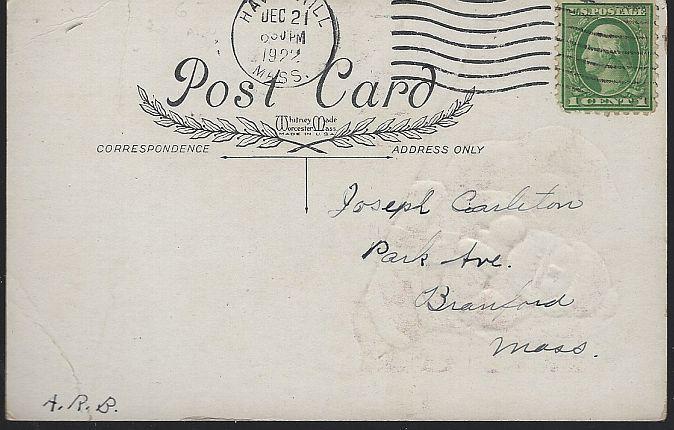 DEC 21
PM
1922
MASS.
U.S. POSTAGE
1 CENT 1
Post Card
Whitney Made
Worcester Mass
MADE IN U.S.A.
CORRESPONDENCE
ADDRESS ONLY
Joseph Carleton
Park Ave.
Branford
Mass.
A.R.B.